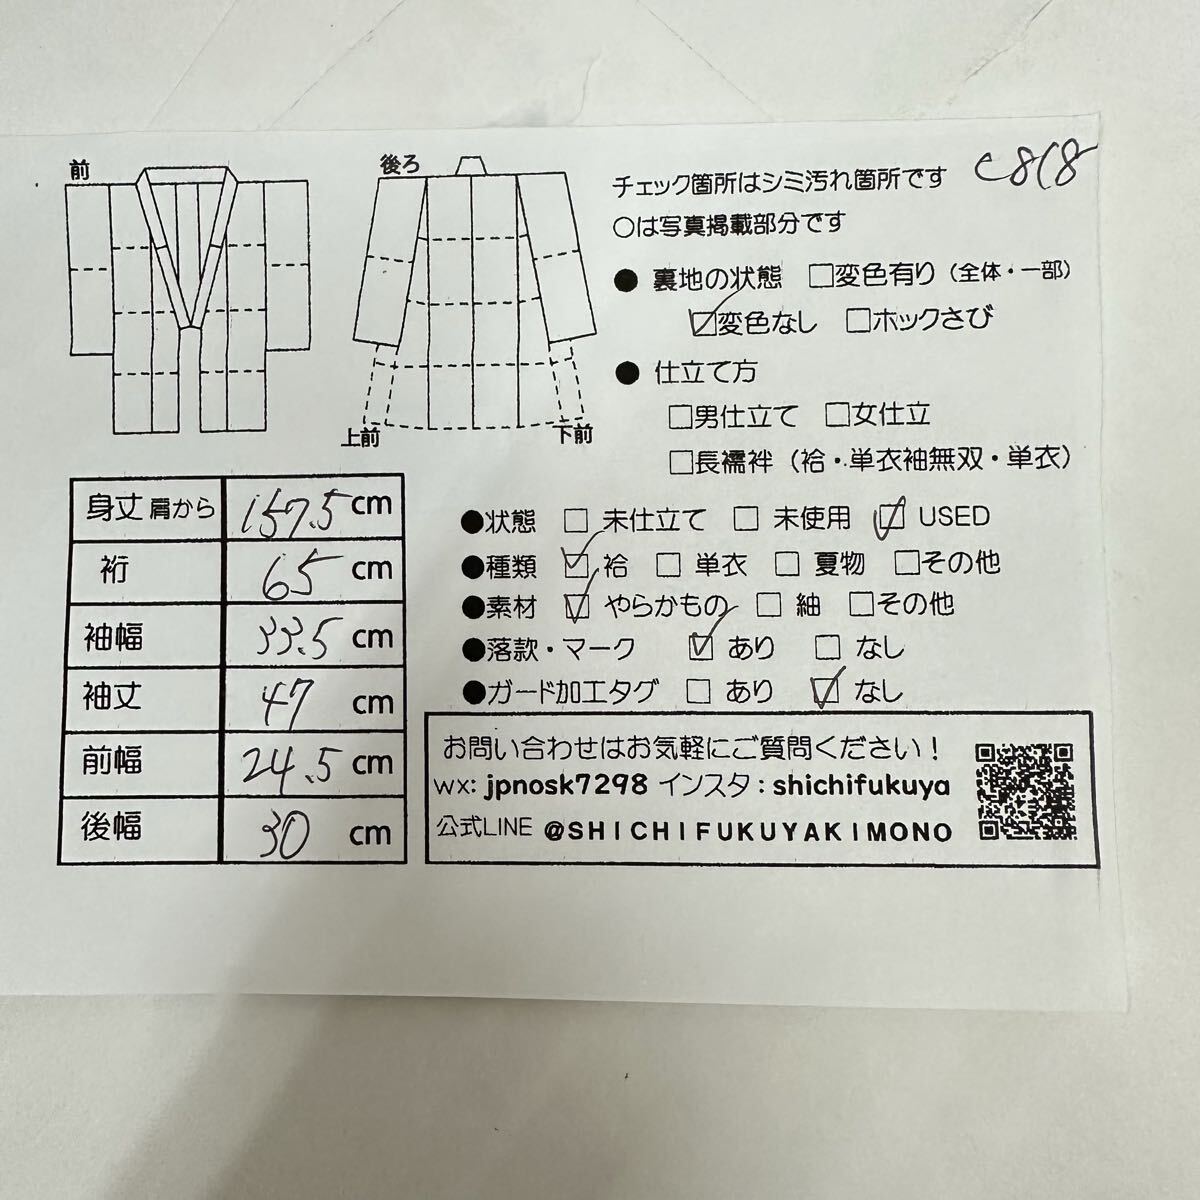 前
後ろ
上前
下前
チェック箇所はシミ汚れ箇所です
c818
○は写真掲載部分です
● 裏地の状態 □変色有り（全体・一部）
☑変色なし □ホックさび
● 仕立て方
□男仕立て □女仕立
□長襦袢（袷・単衣袖無双・単衣）
身丈 肩から 157.5 cm
裄 65 cm
袖幅 33.5 cm
袖丈 47 cm
前幅 24.5 cm
後幅 30 cm
●状態 □ 未仕立て □ 未使用 ☑ USED
●種類 ☑ 袷 □ 単衣 □ 夏物 □その他
●素材 ☑ やらかもの □ 紬 □その他
●落款・マーク ☑ あり □ なし
●ガード加工タグ □ あり ☑ なし
お問い合わせはお気軽にご質問ください！
wx: jpnosk7298 インスタ : shichifukuya
公式LINE @SHICHIFUKUYAKIMONO